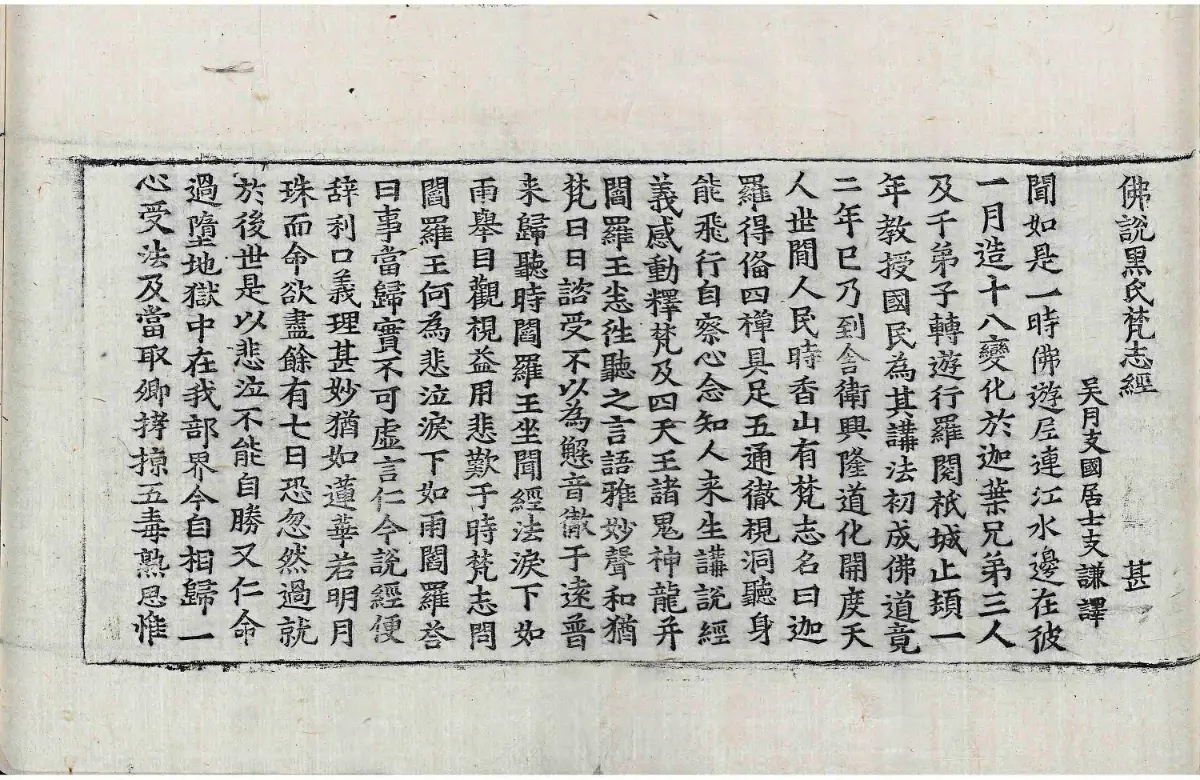 佛說黑氏梵志經 甚
吳月支國居士支謙譯
聞如是一時佛遊尼連江水邊在彼
一月造十八變化於迦葉兄弟三人
及千弟子轉遊行羅閱祇城止頓一
年教授國民為其講法初成佛道竟
二年已乃到舍衛興隆道化開度天
人世間人民時香山有梵志名曰迦
羅得俻四禪具足五通徹視洞聽身
能飛行自察心念知人来生講說經
義感動釋梵及四天王諸鬼神龍并
閻羅王悉徃聽之言語雅妙聲和猶
梵日日諮受不以為懈音徹于遠普
来歸聽時閻羅王坐聞經法淚下如
雨舉目觀視益用悲歎于時梵志問
閻羅王何為悲泣淚下如雨閻羅荅
曰事當歸實不可虛言仁今說經便
辞利口義理甚妙猶如蓮華若明月
珠而命欲盡餘有七日恐忽然過就
於後世是以悲泣不能自勝又仁命
過墮地獄中在我部界今自相歸一
心受法及當取卿拷掠五毒熟思惟